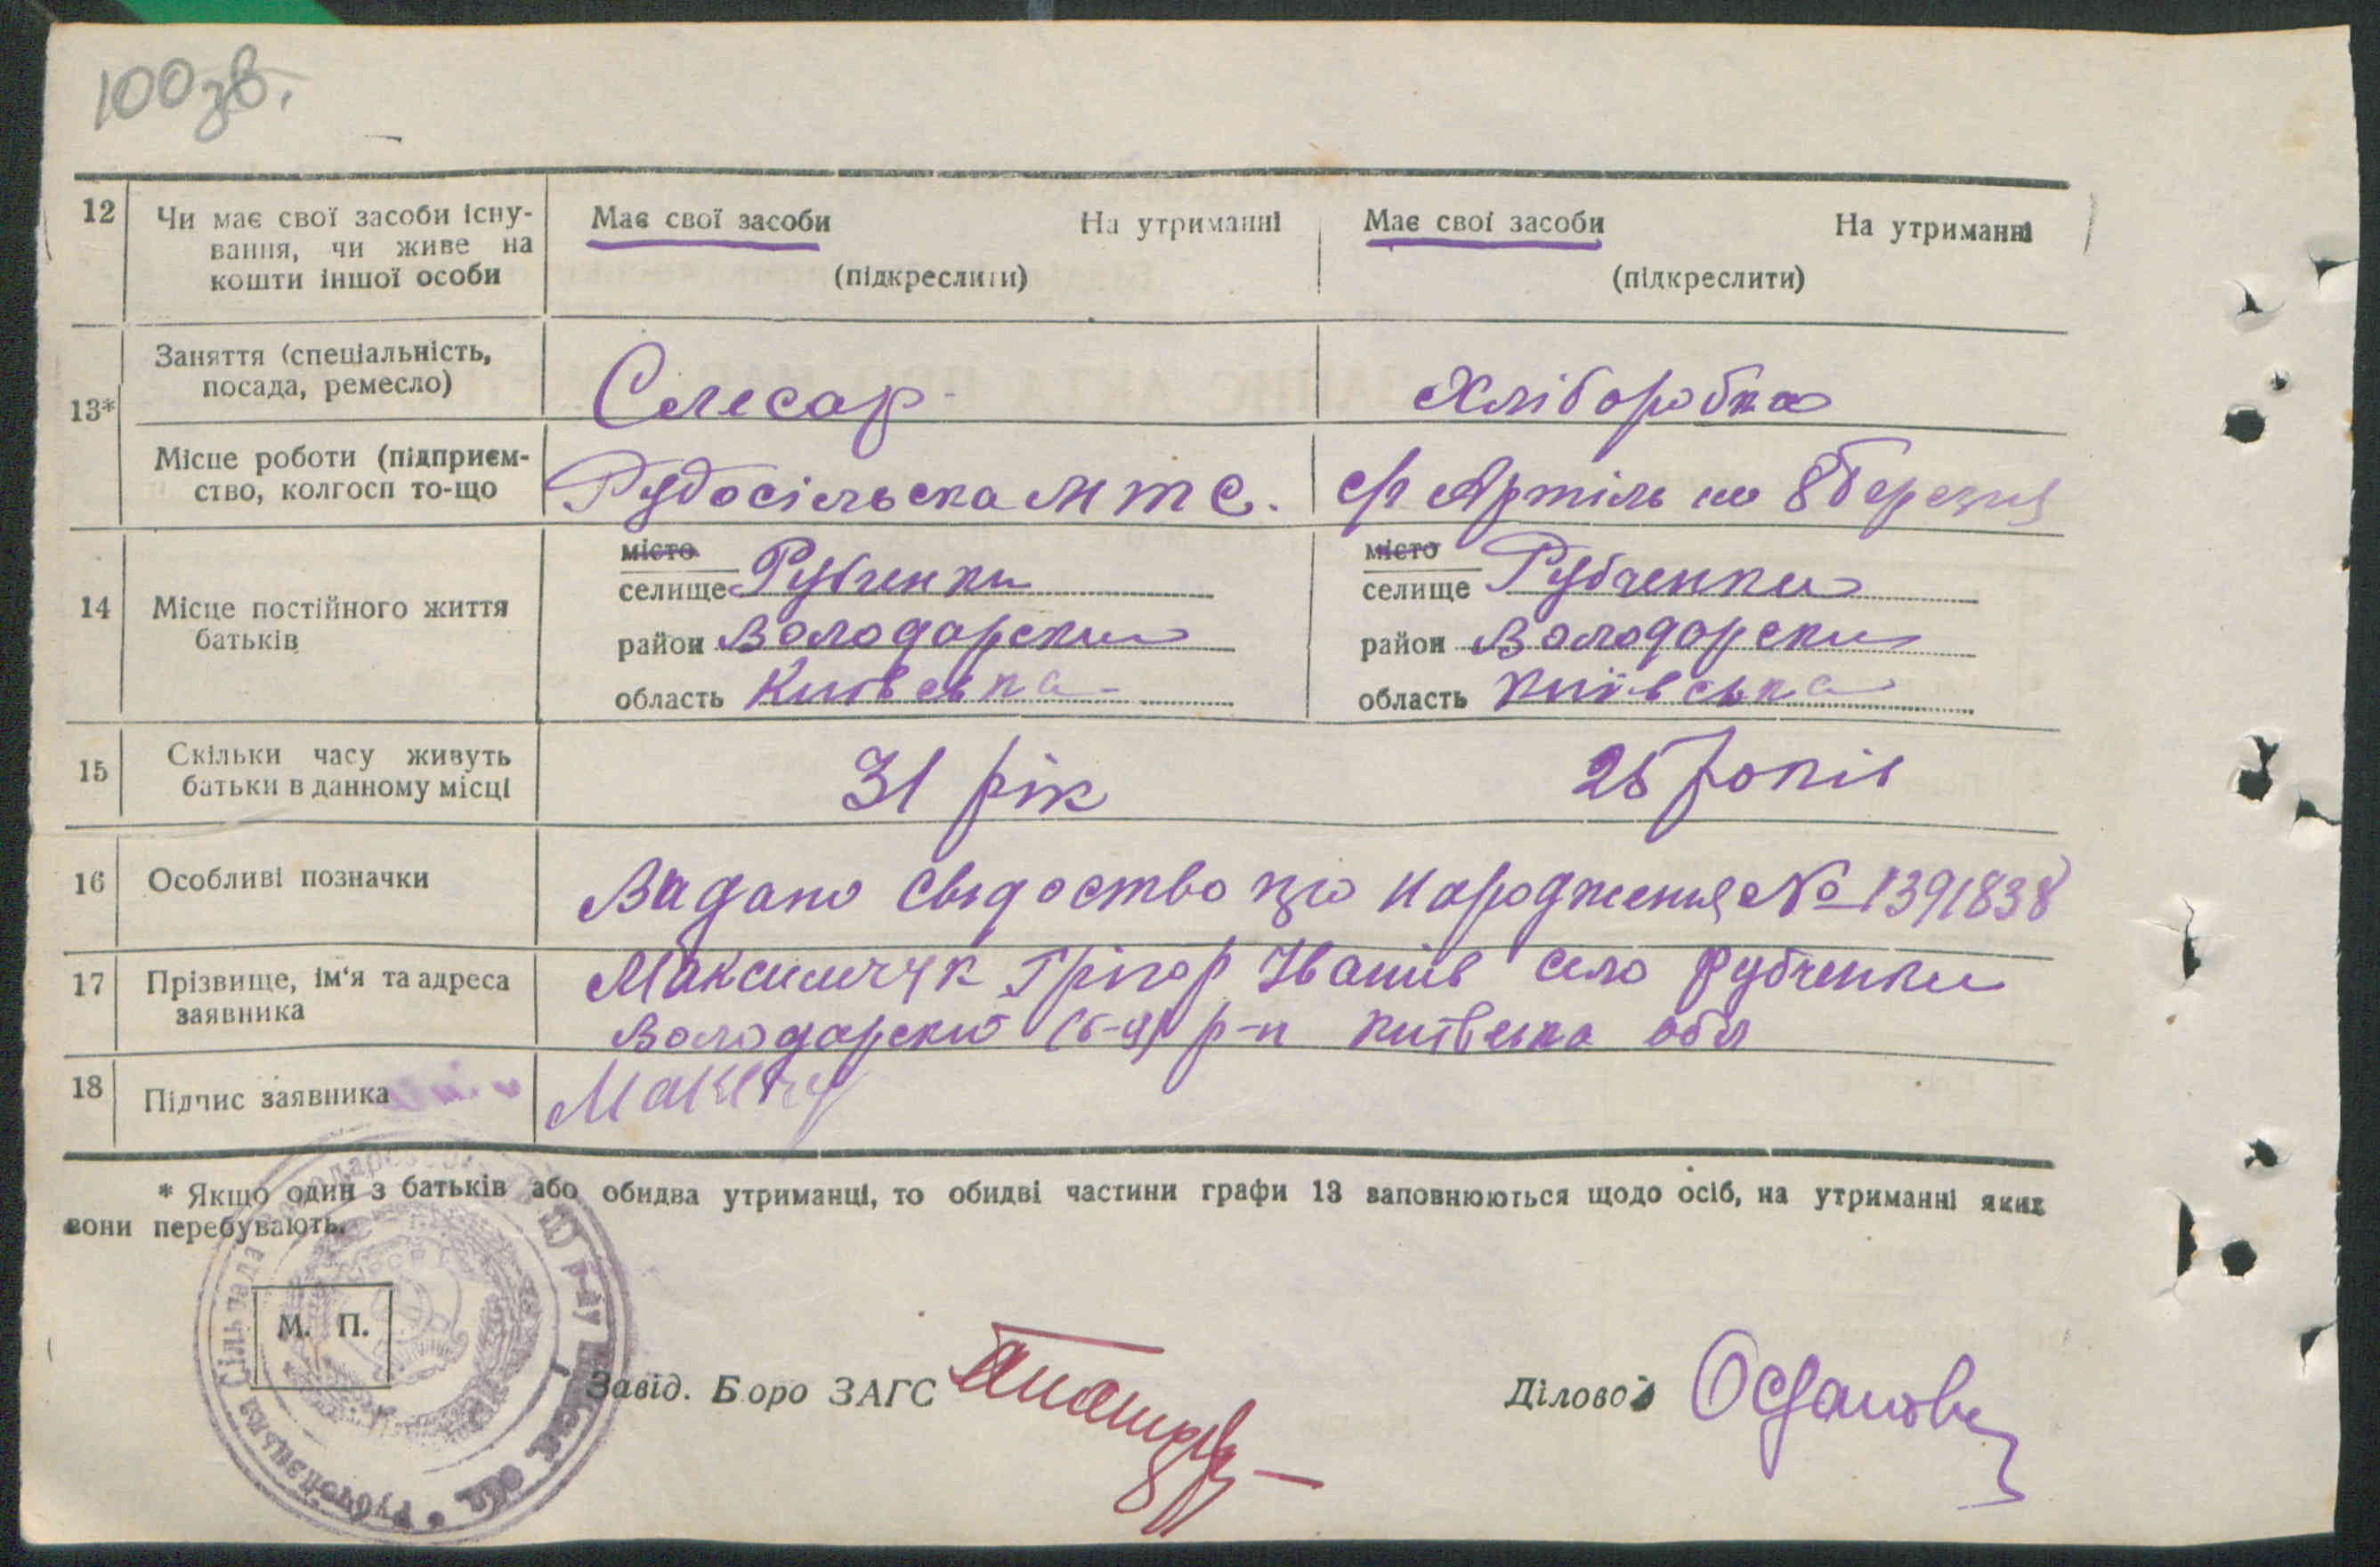 100 зв.
12 Чи має свої засоби існу- Має свої засоби На утриманні Має свої засоби На утриманні
вання, чи живе на
кошти іншої особи (підкреслити) (підкреслити)
13* Заняття (спеціальність, Слесар Хліборобка
посада, ремесло)
Місце роботи (підприєм- Рудосільська МТС. с/г Артіль ім 8 березня
ство, колгосп то-що
14 Місце постійного життя батьків
місто місто
селище Рубченки селище Рубченки
район Володарский район Володарский
область Київська область Київська
15 Скільки часу живуть 31 рік 25 років
батьки в данному місці
16 Особливі позначки Видано свідоство про народження № 1391838
17 Прізвище, ім'я та адреса Максимчук Грігор Іванів село Рубченки
заявника Володарский р-н Київська обл
18 Підпис заявника
* Якщо один з батьків або обидва утриманці, то обидві частини графи 13 заповнюються щодо осіб, на утриманні яких
вони перебувають.
М. П.
Завід. Бюро ЗАГС Діловод